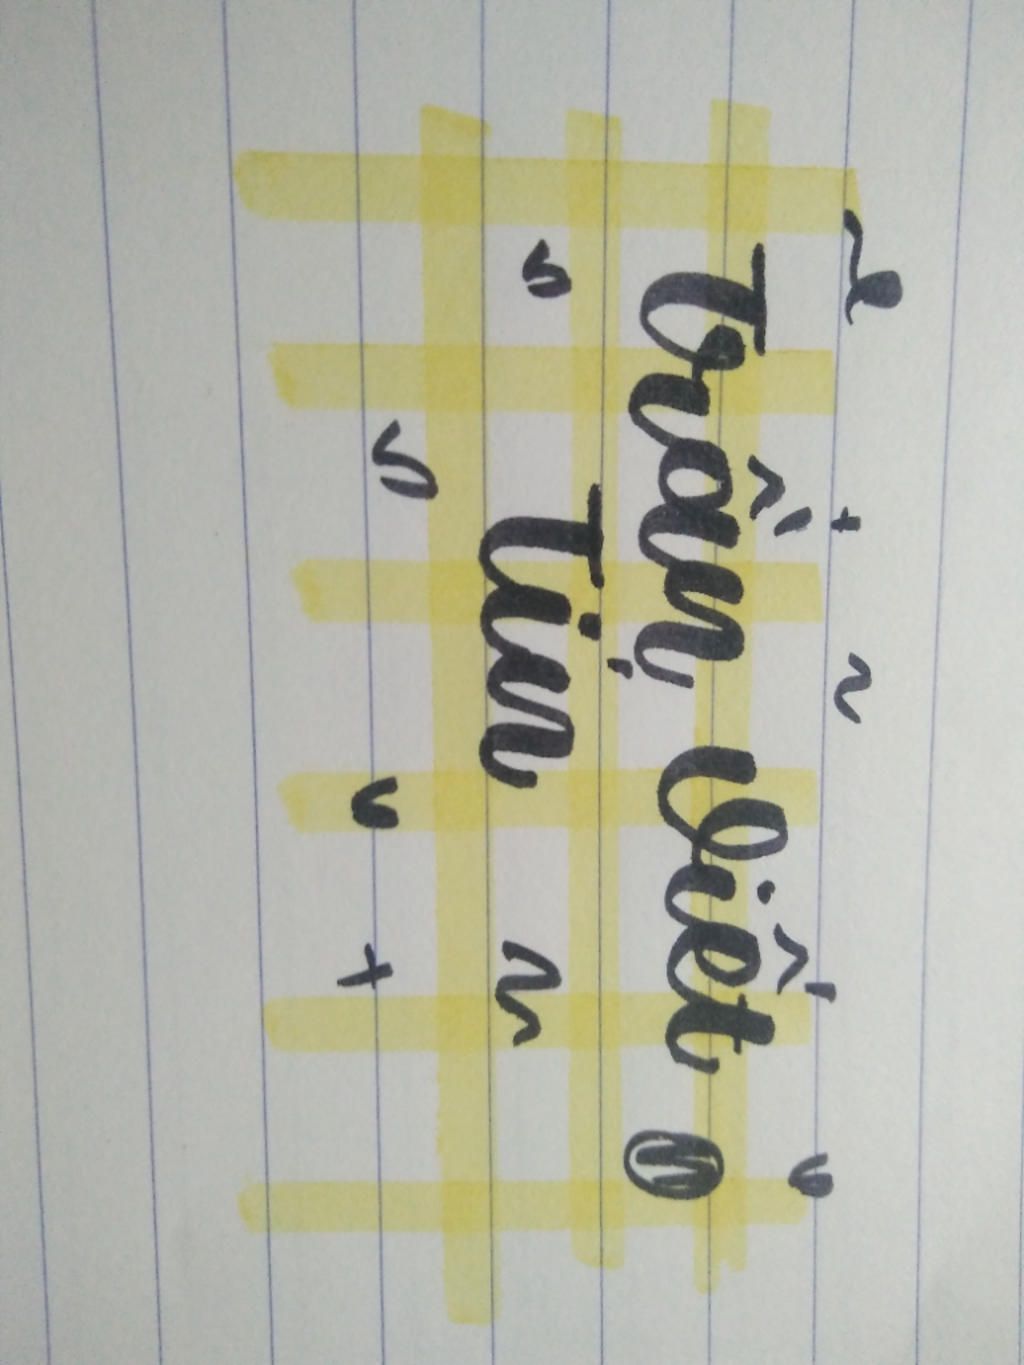 Trần Viết
Tín